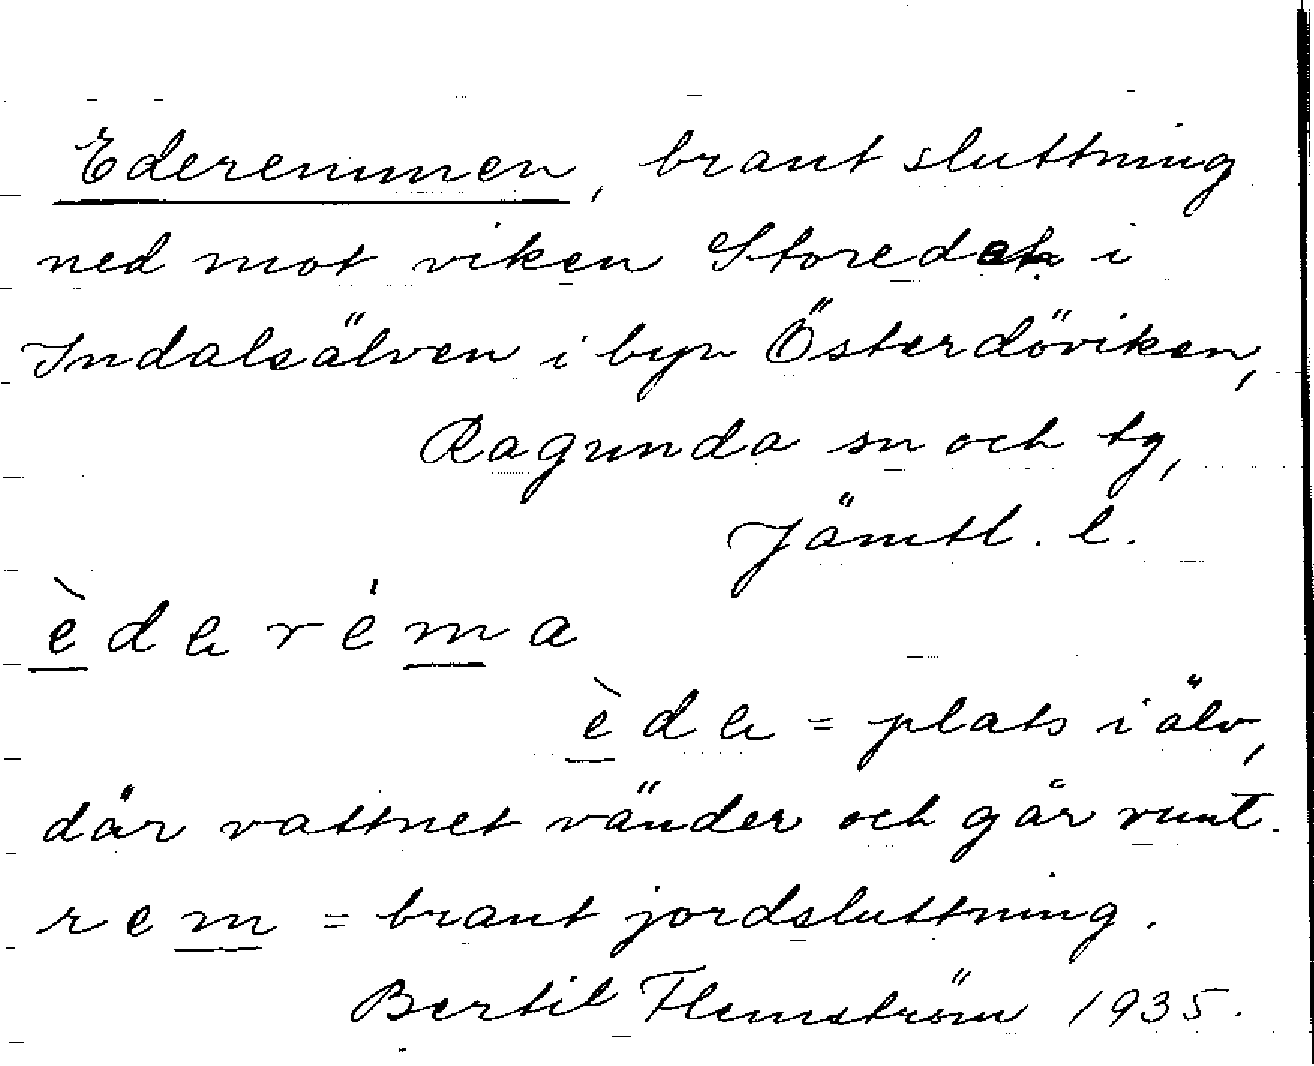 Ederemmen, brant sluttning
ned mot viken Storedet i
Indalsälven i byn Österdöviken,
Ragunda sn och tg,
Jämtl. l.
è d e r é m a
è d e = plats i älv,
där vattnet vänder och går runt.
r e m = brant jordsluttning.
Bertil Flemström 1935.